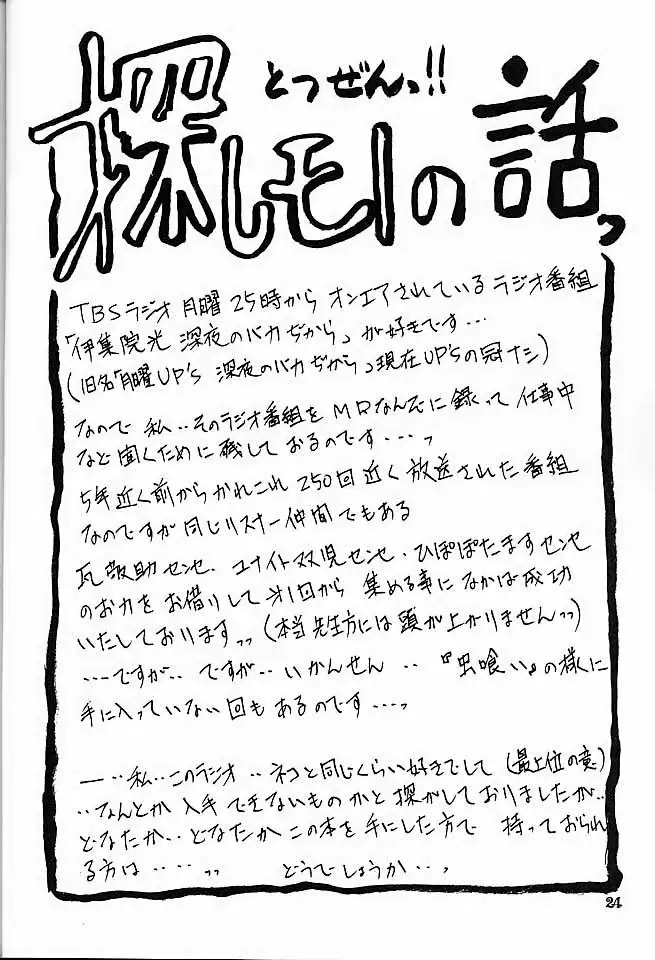 とつぜんっ!!
探しモノの話っ
TBSラジオ月曜25時からオンエアされているラジオ番組
「伊集院光 深夜のバカぢから」が好きです…
(旧名「月曜UP's 深夜のバカぢから」現在UP'sの冠ナシ)
なので 私‥そのラジオ番組をMDなんぞに録って仕事中
など聞くために残しておるのです……っ
5年近く前からかれこれ250回近く放送された番組
なのですが同じリスナー仲間でもある
瓦敬助センセ、ユナイト双児センセ・ひぽぽたますセンセ
のお力をお借りして第1回から集める事になかば成功
いたしておりますっっ(本当先生方には頭が上がりませんっっ)
……ですが‥ですが‥いかんせん‥『虫喰い』の様に
手に入っていない回もあるのです……っ
―‥私‥このラジオ‥ネコと同じくらい好きでして(最上位の意)
‥なんとか入手できないものかと探がしておりましたが‥
どなたか‥どなたかこの本を手にした方で 持っておられ
る方は……っっ どうでしょうか…っ
24